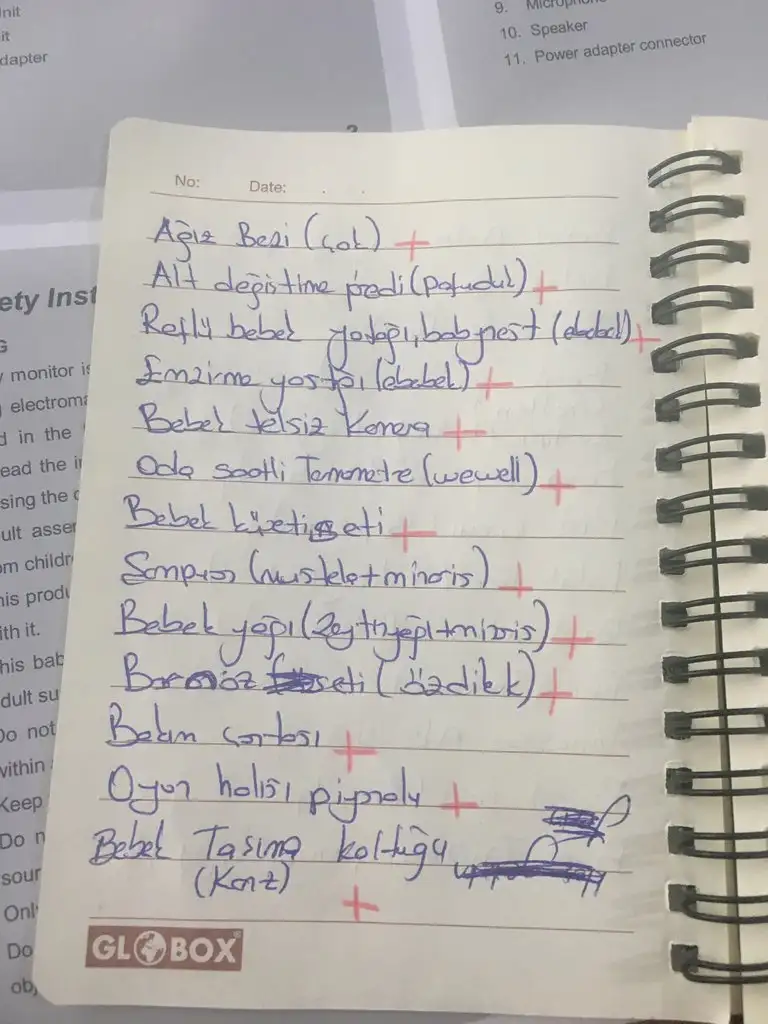 nit
it
dapter
9. Microphone
10. Speaker
11. Power adapter connector
2
No: Date: . .
Ağız Bezi (çok) +
Alt değiştime pedi (Pafuduk) +
Reflü bebek yatağı, babynest (ebebek) +
Emzirme yastığı (ebebek) +
Bebek telsiz Kamera +
Oda saatli Termometre (wewell) +
Bebek küveti seti +
Şampuan (mustela+minoris) +
Bebek yağı (Zeytinyağı+minoris) +
Bornoz seti (özdilek) +
Bakım çantası +
Oyun halısı piyanolu +
Bebek Taşıma koltuğu
(Kanz)
+
GLOBOX
ety Inst
G
y monitor is
electroma
d in the
ead the in
sing the
ult asser
om childr
his produ
ith it.
his bab
dult su
Do not
within
Keep
Do n
sour
Only
Do
obj